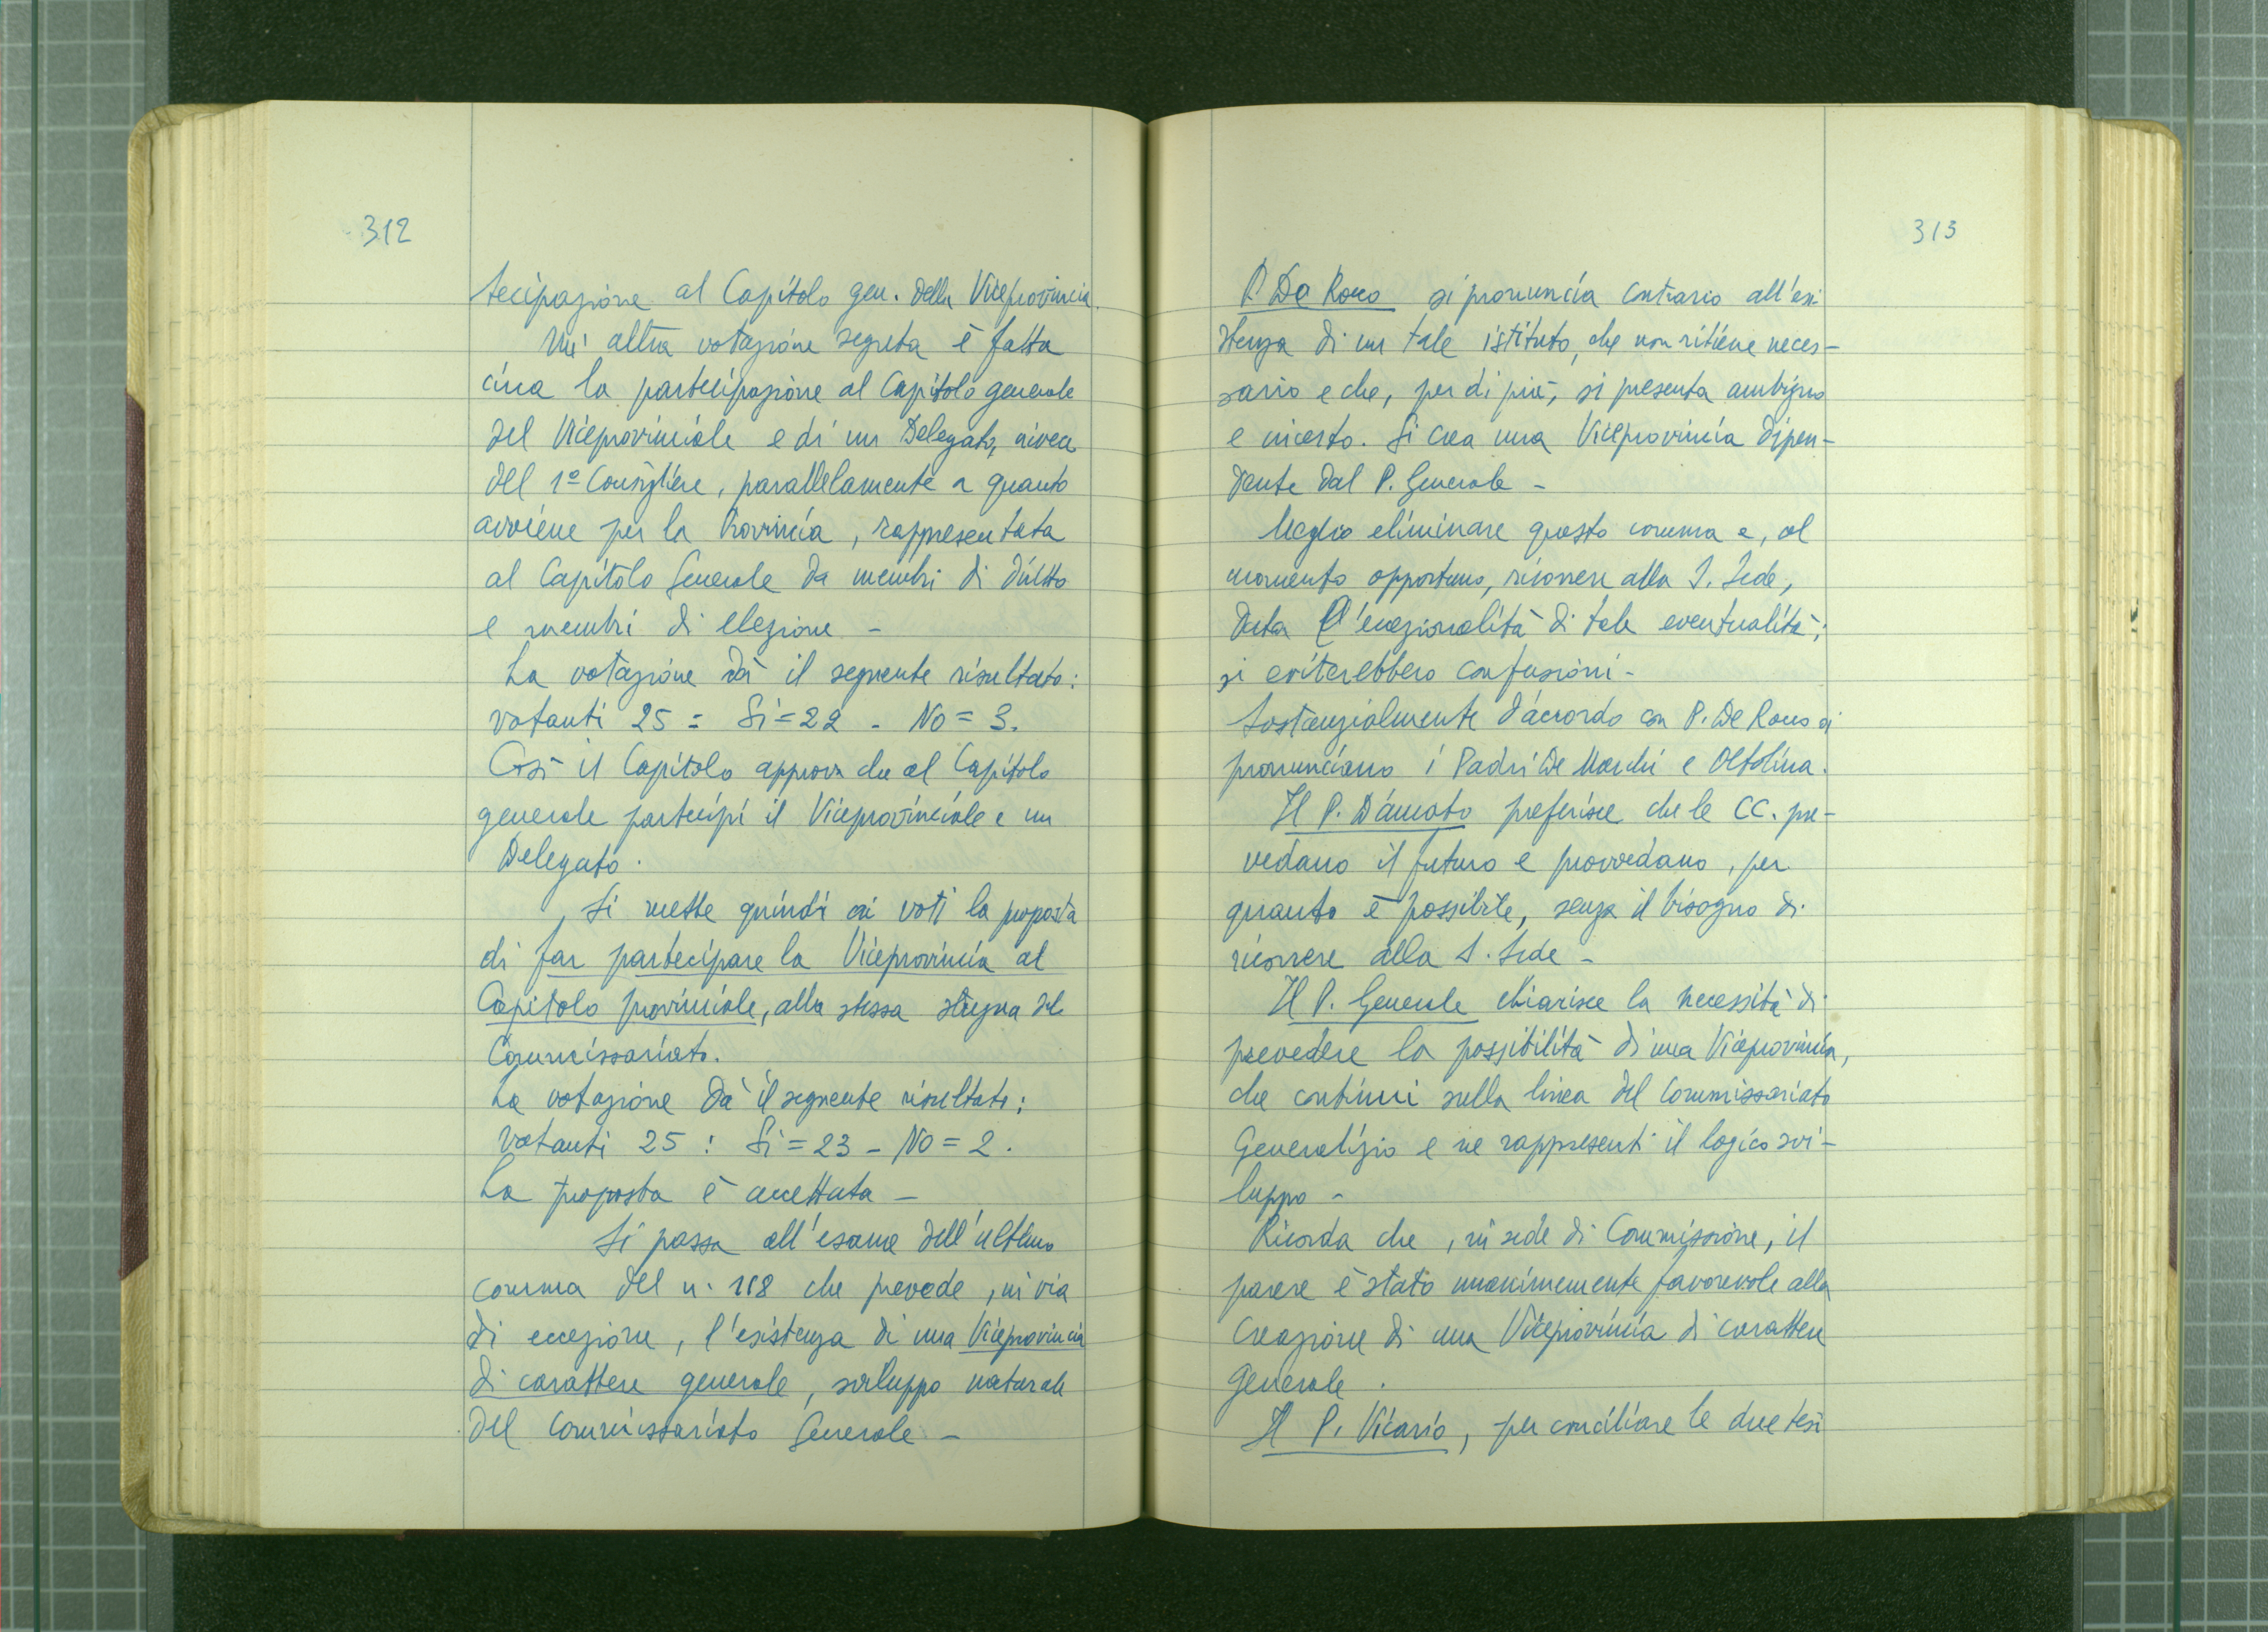 312
tecipazione al Capitolo gen. della Viceprovincia.
Un' altra votazione segreta è fatta
circa la partecipazione al Capitolo generale
del Viceprovinciale e di un Delegato, invece
del 1º Consigliere, parallelamente a quanto
avviene per la Provincia, rappresentata
al Capitolo Generale da membri di diritto
e membri di elezione -
La votazione dà il seguente risultato:
votanti 25 = Si = 22 - No = 3.
Così il Capitolo approva che al Capitolo
generale partecipi il Viceprovinciale e un
Delegato.
Si mette quindi ai voti la proposta
di far partecipare la Viceprovincia al
Capitolo provinciale, alla stessa stregua del
Commissariato.
La votazione dà il seguente risultato:
votanti 25 : Si = 23 - No = 2.
La proposta è accettata -
Si passa all'esame dell'ultimo
comma del n. 118 che prevede, in via
di eccezione, l'esistenza di una Viceprovincia
di carattere generale, sviluppo naturale
del Commissariato Generale -
313
P. De Rocco si pronuncia contrario all'esi-
stenza di un tale istituto, che non ritiene neces-
sario e che, per di più, si presenta ambiguo
e incerto. Si crea una Viceprovincia dipen-
dente dal P. Generale -
Meglio eliminare questo comma e, al
momento opportuno, ricorrere alla S. Sede,
data l'eccezionalità di tale eventualità;
si eviterebbero confusioni -
Sostanzialmente d'accordo con P. De Rocco si
pronunciano i Padri De Marchi e Oltolina.
Il P. D'Amato preferisce che le CC. pre-
vedano il futuro e provvedano, per
quanto è possibile, senza il bisogno di
ricorrere alla S. Sede -
Il P. Generale chiarisce la necessità di
prevedere la possibilità di una Viceprovincia,
che continui sulla linea del Commissariato
Generalizio e ne rappresenti il logico svi-
luppo -
Ricorda che, in sede di Commissione, il
parere è stato unanimemente favorevole alla
creazione di una Viceprovincia di carattere
generale.
Il P. Vicario, per conciliare le due tesi